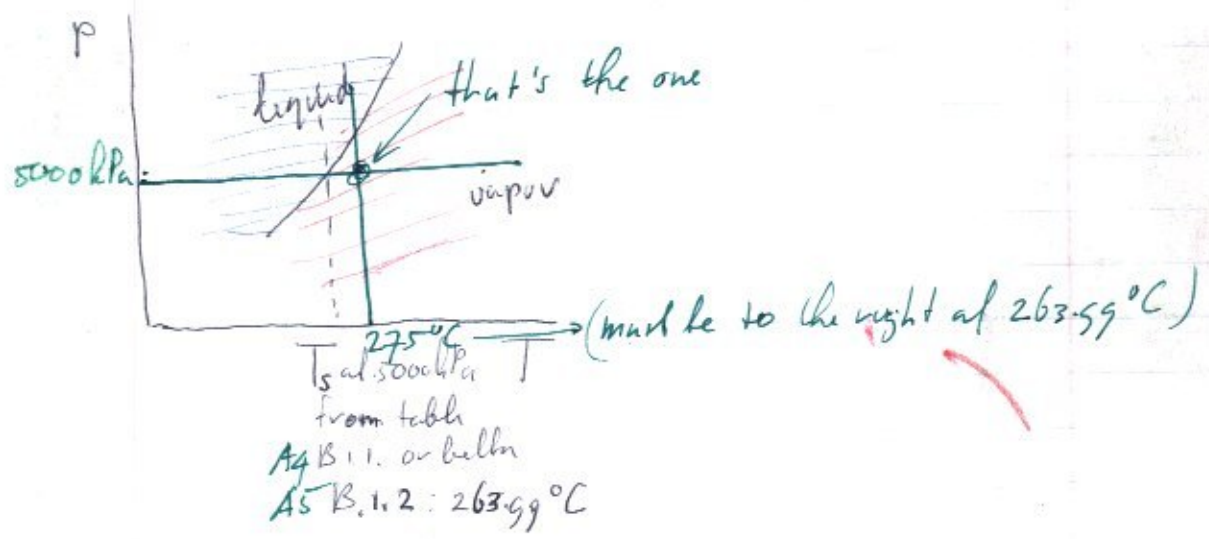 P
liquid
that's the one
5000 kPa
vapor
275°C
(must be to the right of 263.99°C)
Ts at 5000 kPa
T
from table
A4 B.1.1. or better
A5 B.1.2: 263.99°C